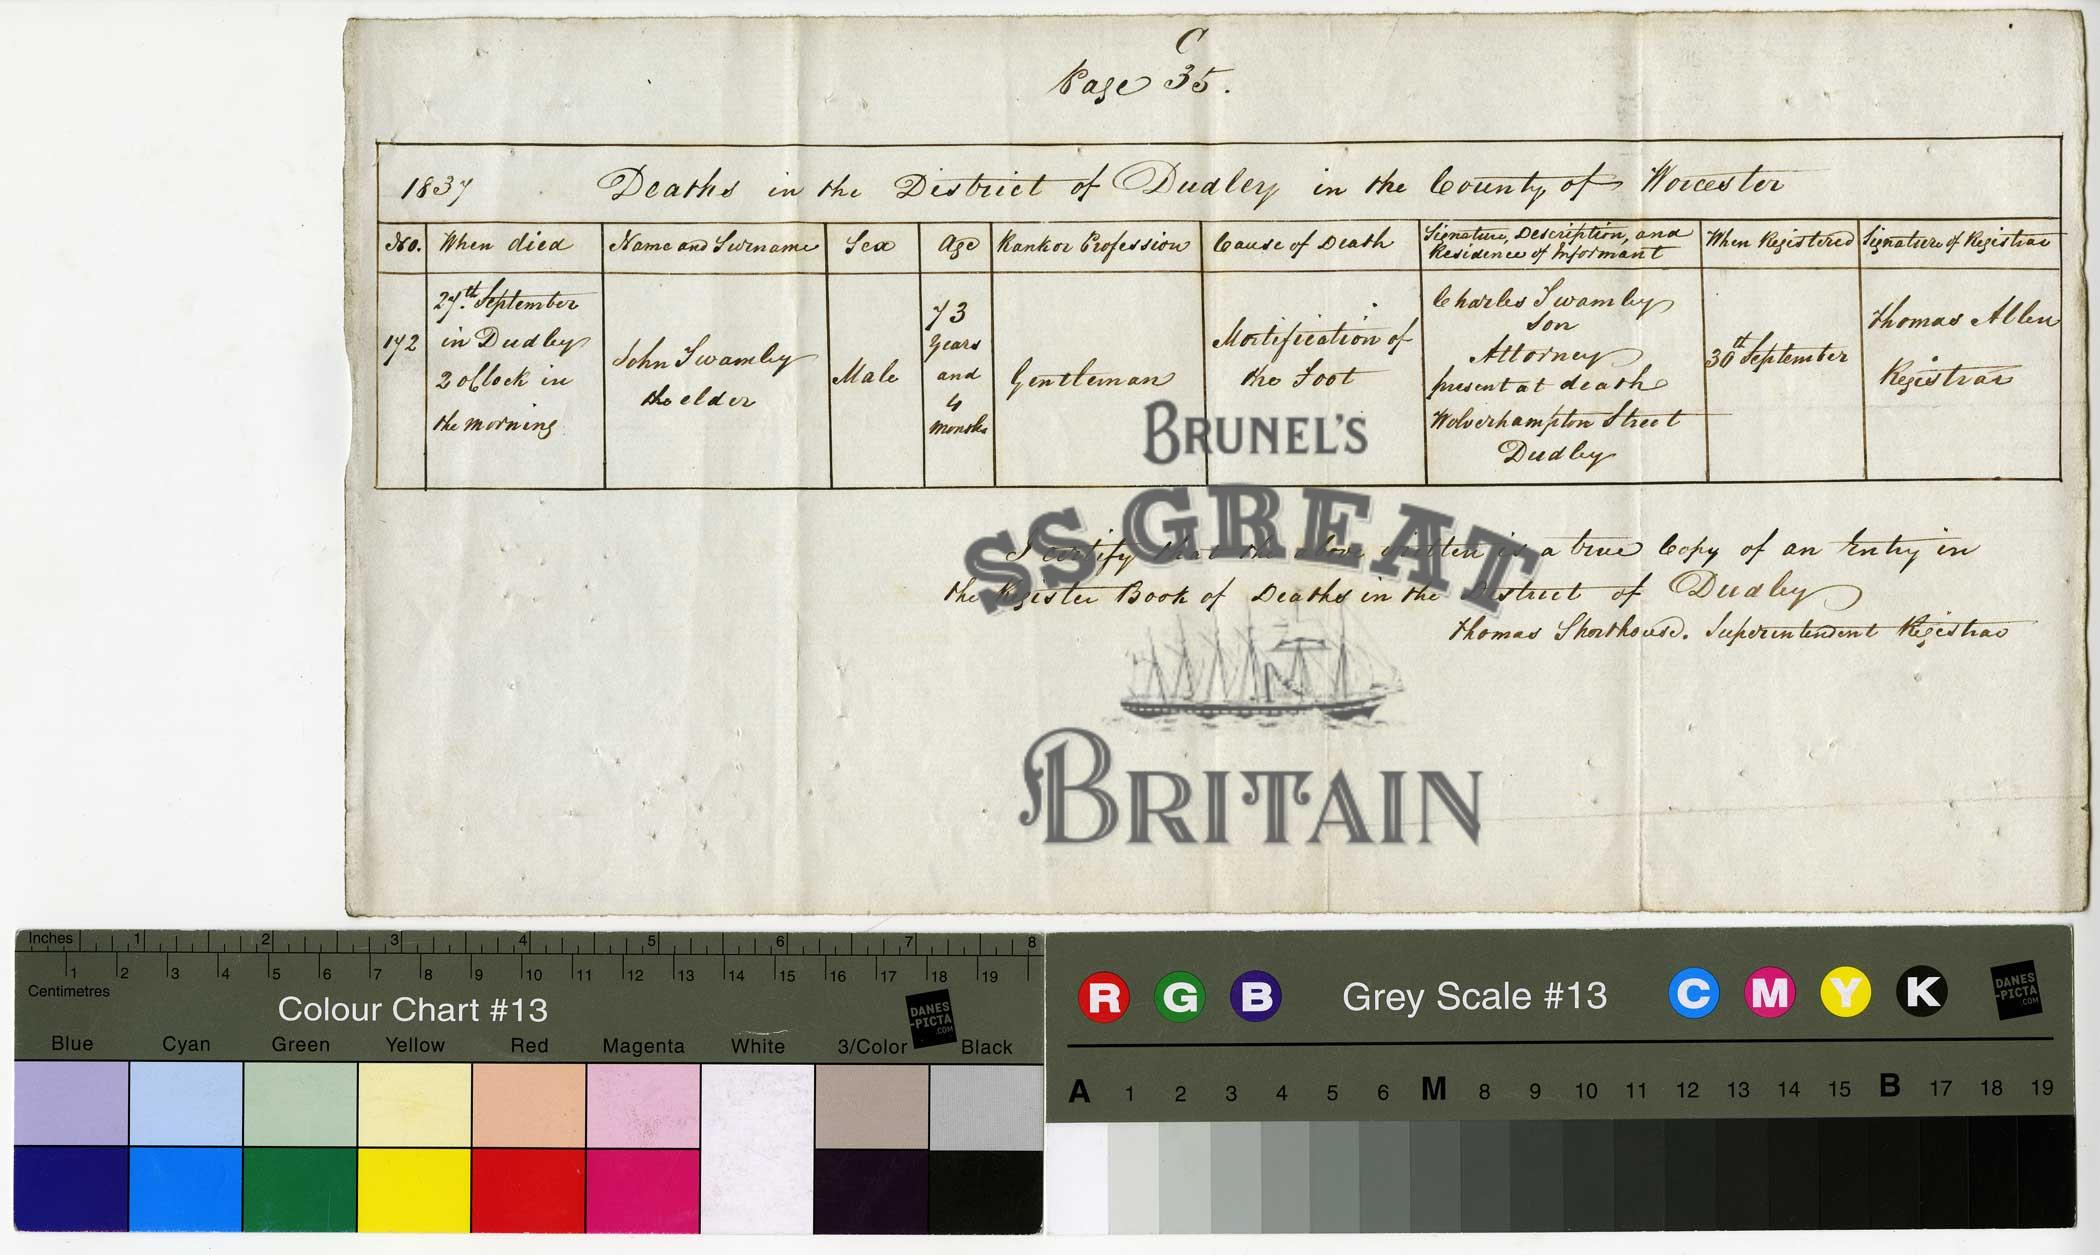 C
Page 35.
1837 Deaths in the District of Dudley in the County of Worcester
No. When died Name and Surname Sex Age Rank or Profession Cause of Death Signature, Description, and Residence of Informant When Registered Signature of Registrar
172
27th September
in Dudley
2 oClock in
the morning
John Swamley
the elder
Male
73
Years
and
4
months
Gentleman
Mortification of
the Foot
Charles Swamley
Son
Attorney
present at death
Wolverhampton Street
Dudley
30th September
Thomas Allen
Registrar
I certify that the above written is a true Copy of an Entry in
the Register Book of Deaths in the District of Dudley
Thomas Shorthouse. Superintendent Registrar
BRUNEL'S
SS GREAT
BRITAIN
Inches 1 2 3 4 5 6 7 8
1 2 3 4 5 6 7 8 9 10 11 12 13 14 15 16 17 18 19
Centimetres
Colour Chart #13
DANES
-PICTA
.COM
Blue Cyan Green Yellow Red Magenta White 3/Color Black
R G B Grey Scale #13 C M Y K
DANES
-PICTA
.COM
A 1 2 3 4 5 6 M 8 9 10 11 12 13 14 15 B 17 18 19